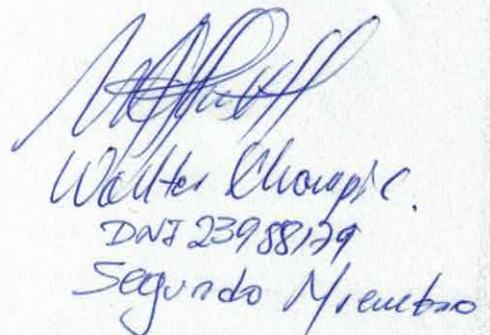 Walter Champi C.
DNI 23988179
Segundo Miembro